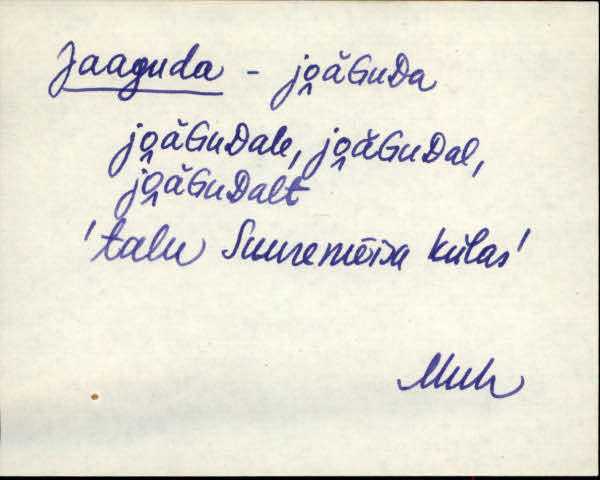 Jaaguda - jo̭äGuDa
jo̭äGuDale, jo̭äGuDal,
jo̭äGuDalt
'talu Suuremõisa külas'
Muh